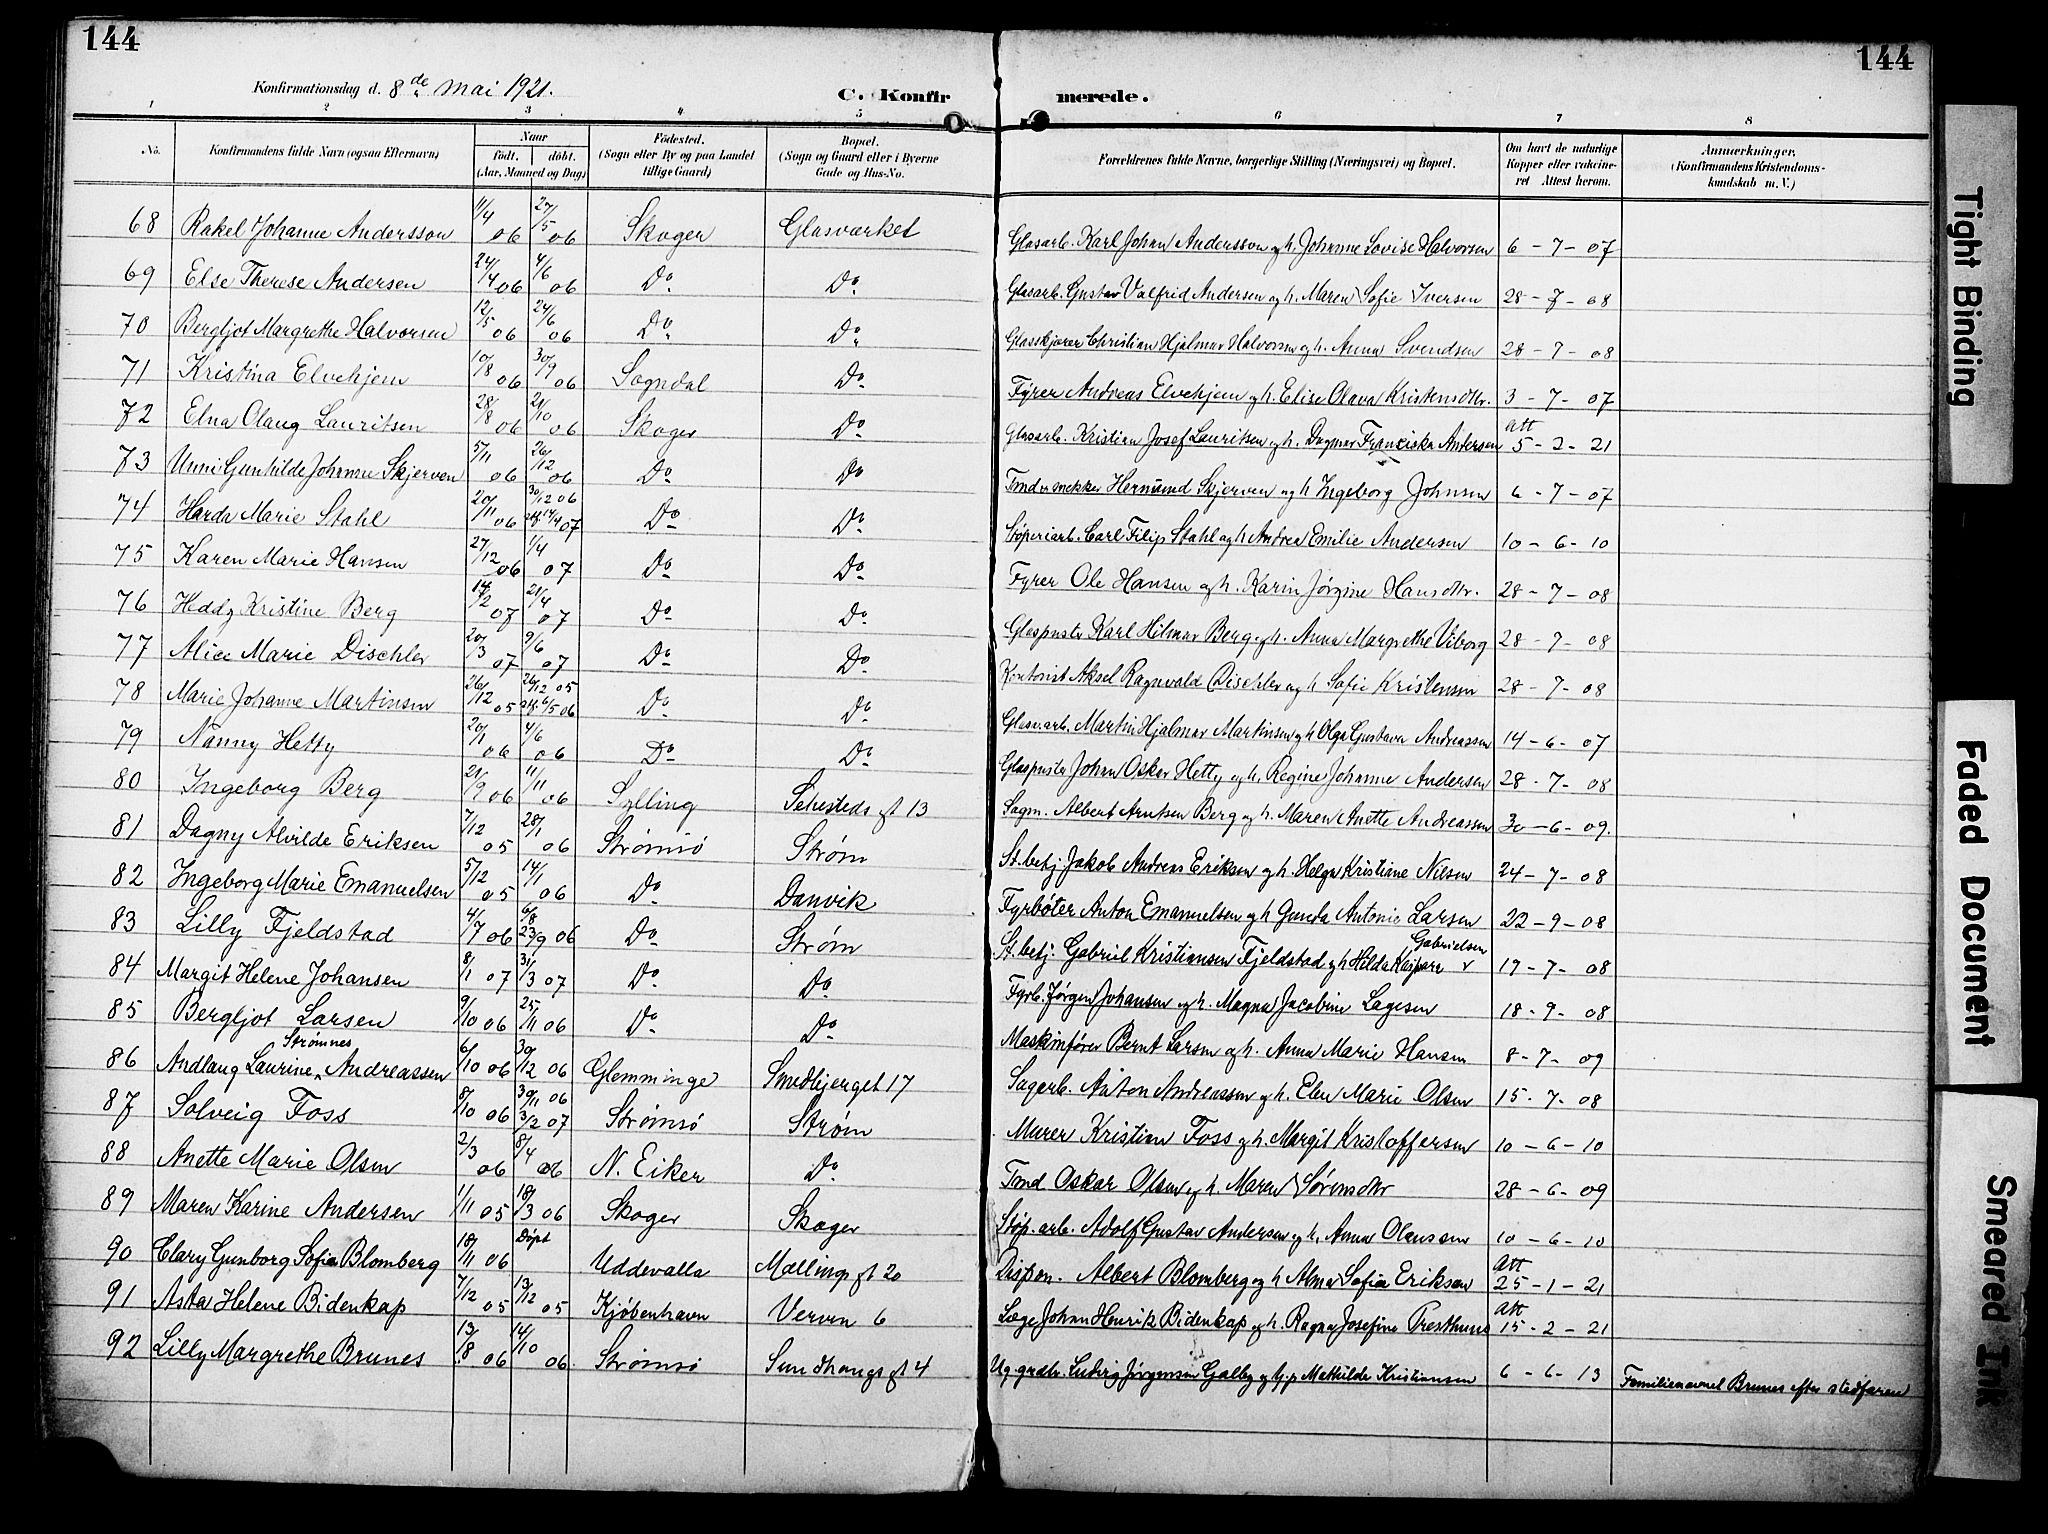 144
144
Konfirmationsdag d. 8de Mai 1921.
C. Konfir merede.
1 2 3 4 5 6 7 8
No. Konfirmandens fulde Navn (ogsaa Efternavn) Naar født. døbt. (Aar, Maaned og Dag) Fødested. (Sogn eller By og paa Landet tillige Gaard) Bopæl. (Sogn og Gaard eller i Byerne Gade og Hus-No. Forældrenes fulde Navne, borgerlige Stilling (Næringsvei) og Bopæl. Om havt de naturlige Kopper eller vakcineret Attest herom. Anmærkninger, (Konfirmandens Kristendomskundskab m. V.)
68 Rakel Johanne Andersson 11/4 06 27/5 06 Skoger Glasværket Glasarb. Karl Johan Andersson og h. Johanne Lovise Halvorsen 6-7-07
69 Else Therese Andersen 24/4 06 4/6 06 Do Do Glasarb. Gustav Valfrid Andersen og h. Maren Sofie Iversen 28-7-08
70 Bergljot Margrethe Halvorsen 12/5 06 24/6 06 Do Do Glasskjærer Christian Hjalmar Halvorsen og h. Anna Svendsen 28-7-08
71 Kristina Elvehjem 10/8 06 30/9 06 Sogndal Do Fyrer Andreas Elvehjem og h. Elise Olava Kristensdtr. 3-7-07
72 Elna Olaug Lauritsen 28/8 06 21/10 06 Skoger Do Glasarb. Kristian Josef Lauritsen og h. Dagmar Franciska Andersen Att 5-2-21
73 Unni Gunhilde Johanne Skjerven 5/11 06 26/12 06 Do Do Tøndesnekker Hermund Skjerven og h Ingeborg Johnsen 6-7-07
74 Harda Marie Stahl 20/11 06 30/12 06 14/4 07 Do Do Støperiarb. Carl Filip Stahl og h Andrea Emilie Andersen 10-6-10
75 Karen Marie Hansen 27/12 06 1/4 07 Do Do Fyrer Ole Hansen og h. Karin Jørgine Hansdtr. 28-7-08
76 Heddy Kristine Berg 14/2 07 21/4 07 Do Do Glaspuster Karl Hilmar Berg og h. Anna Margrethe Viborg 28-7-08
77 Alice Marie Dischler 20/3 07 9/6 07 Do Do Kontorist Aksel Ragnvald Dischler og h Sofie Kristensen 28-7-08
78 Marie Johanne Martinsen 26/12 05 26/12 05 6/5 06 Do Do Glasv.arb. Martin Hjalmar Martinsen og h Olga Gustava Andreassen 14-6-07
79 Nanny Hetty 20/1 06 4/6 06 Do Do Glaspuster Johan Oskar Hetty og h. Regine Johanne Andersen 28-7-08
80 Ingeborg Berg 21/9 06 11/11 06 Sylling Sehesteds gt 13 Sagm. Albert Arntsen Berg og h. Maren Anette Andreassen 30-6-09.
81 Dagny Alvilde Eriksen 7/12 05 28/1 06 Strømsø Strøm St.betj. Jakob Andreas Eriksen og h. Helga Kristiane Nilsen 24-7-08
82 Ingeborg Marie Emanuelsen 5/12 05 14/1 06 Do Danvik Fyrbøter Anton Emanuelsen og h Gunda Antonie Larsen 22-9-08
83 Lilly Fjeldstad 4/7 06 6/8 23/9 06 Do Strøm St. betj. Gabriel Kristiansen Fjeldstad og h Hilda Kaspara Gabrielsen 17-7-08
84 Margit Helene Johansen 8/1 07 31/3 07 Do Do Fyrb. Jørgen Johansen og h. Magna Jacobine Lagesen 18-9-08
85 Bergljot Larsen 9/10 06 25/11 06 Do Do Maskinfører Bernt Larsen og h. Anna Marie Hansen 8-7-09
Strømnes
86 Andlaug Laurine Andreassen 6/10 06 30/12 06 Glemminge Smedbjerget 17 Sagarb. Anton Andreassen og h. Elen Marie Olsen 15-7-08
87 Solveig Foss 8/10 06 30/11 06 3/2 07 Strømsø Strøm Murer Kristian Foss og h. Margit Kristoffersen 10-6-10
88 Anette Marie Olsen 2/3 06 8/4 06 N. Eiker Do Tønd Oskar Olsen og h. Maren Sørensdtr 28-6-09
89 Maren Karine Andersen 1/11 05 18/3 06 Skoger Skoger Støp. arb. Adolf Gustav Andersen og h. Anna Olaussen 10-6-10
90 Clary Gunborg Sofia Blomberg 18/11 06 Døpt Uddevalla Mællings gt 20 Dispon. Albert Blomberg og h Alma Sofia Erikson Att 25-1-21
91 Asta Helene Bidenkap 7/12 05 13/12 05 Kjøbenhavn Verven 6 Læge Johan Henrik Bidenkap og h. Ragna Josefine Presthuus Att 15-2-21
92 Lilly Margrethe Brunes 13/8 06 14/10 06 Strømsø Sundhaugs gt 4 Ug. gradtr. Ludvig Jørgensen Galby og Mathilde Kristiansen 6-6-13 Familienavnet Brunes efter stedfaren
Tight Binding
Faded Document
Smeared Ink